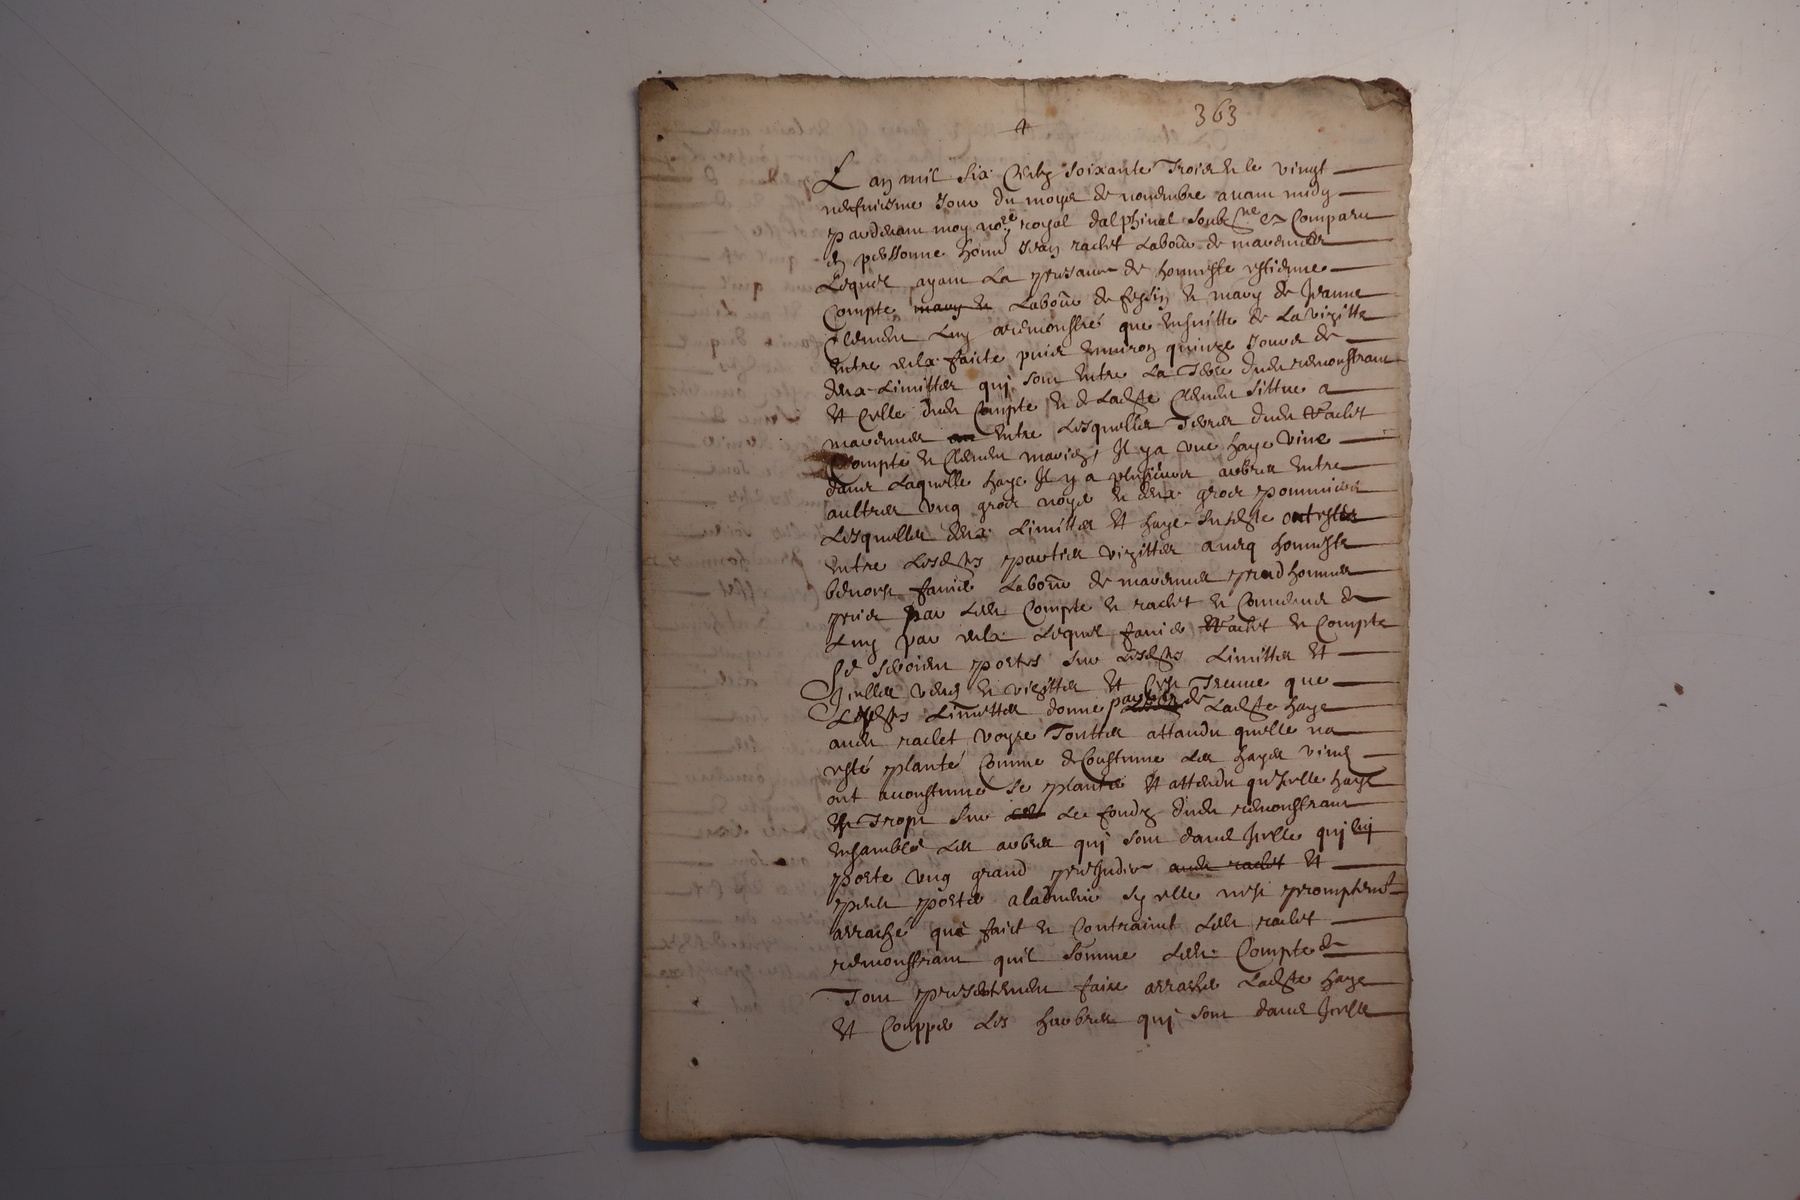 363
L an mil six centz soixante trois & le vingt
neufuiesme Jour du moys de nouembre auant midy
pardeuant moy no.re royal dalphinal soubz.ne est Comparu
en personne honn Jean raclet Labour de mauernes
Lequel ayant La presance de honneste estienne
Compte mary & Labour de feysin & mary de Jeanne
Clement Luy a remonstré que ensuitte de La vizitte
entre eulx faicte puis enuiron quinze Jours de
deux Limittes qui sont entre La Terre dud remonstrant
et Celle dud Compte & de Ladte Clement sittue a
mauernes entre Lesquelles Terres dud Raclet
Compte & Clement maries, Il y a vne haye viue
dans Laquelle haye Il y a plusieurs arbres entre
aultres vng gros noyer & deux gros pommiers
Lesquelles deux Limittes et haye susdte ont estes
entre Lesdtes parties vizittes aueq honneste
benoist Labour de mauernes prudhommes
pris par led Compte & raclet & Conuenus de
Luy par eulx Lequel Raclet & Compte
Se seroient portes sur Lesdtes Limittes et
Icelles veues & vizittes et C'est Treuue que
Lesdtes Limittes donne partie de Ladte haye
aud raclet voyre Touttes attandu quelle na
esté planté Comme de Coustume Les hayes viues
ont acoustume se planter et attendu qu'Icelle haye
est Trop sur Le fondz dud remonstrant
ensamble Les arbres qui sont dans Icelle qui luy
porte vng grand preiudice aud raclet et
peult porter a laduenir sy elle nest promptemt
arraché que faict & Contrainct Led raclet
remonstrant quil somme Led Compte de
Tout presentement faire arracher Ladte haye
et Coupper Les harbres qui sont dans Icelle